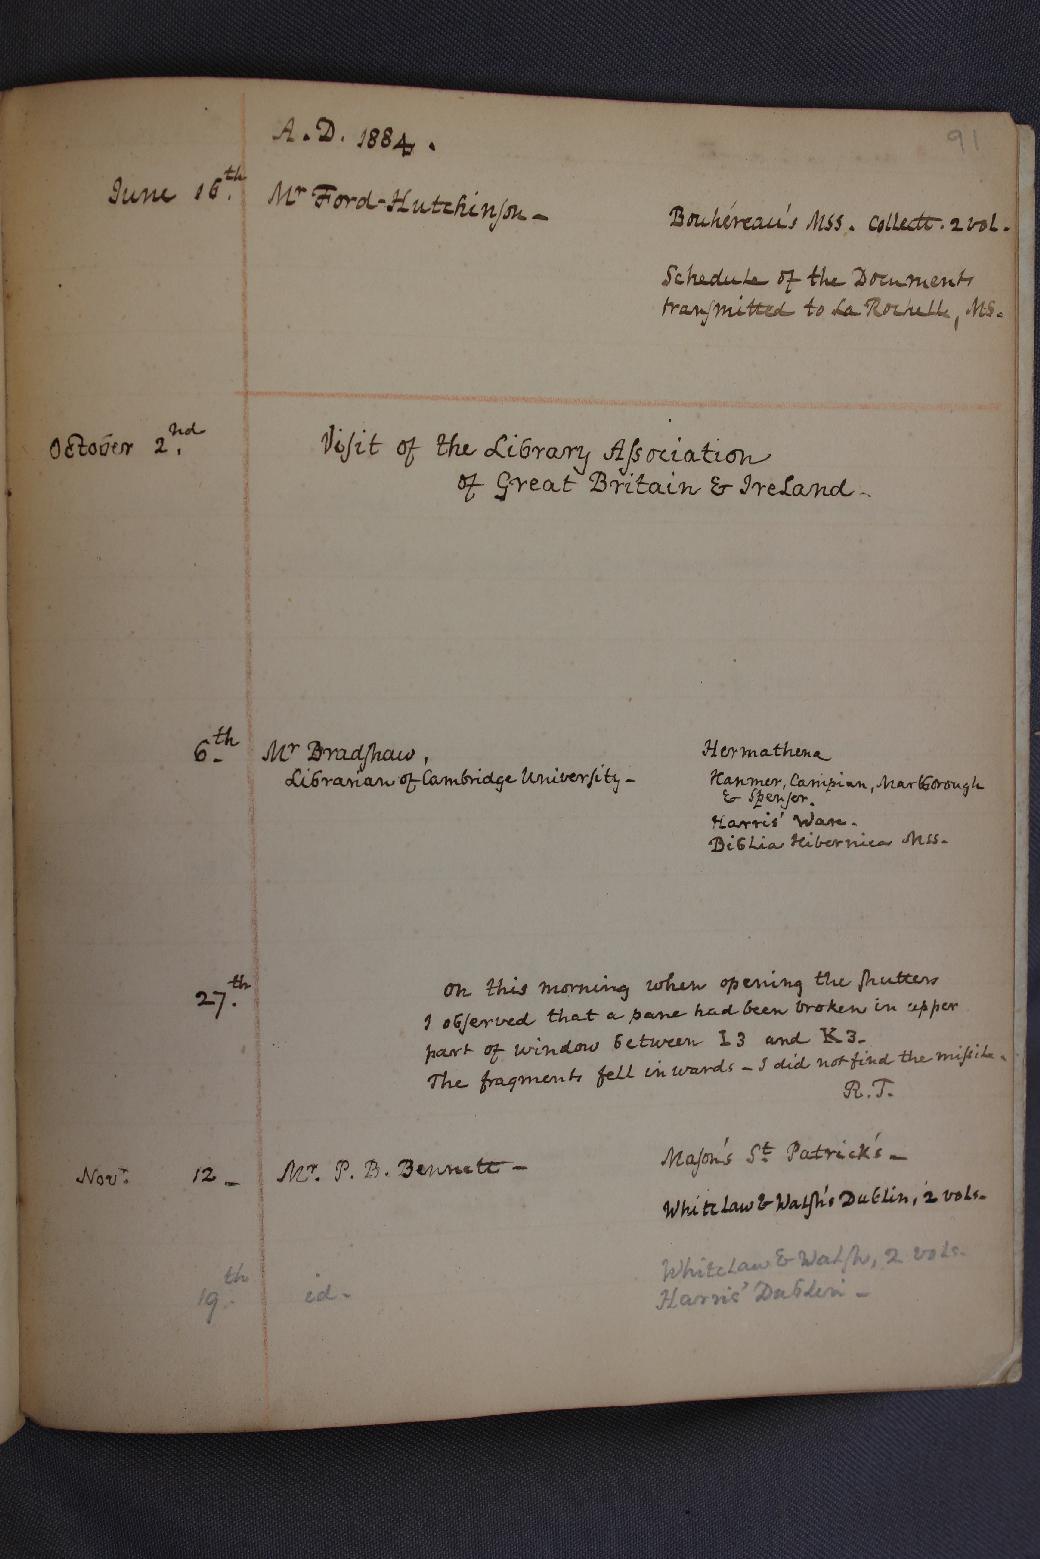 91
A.D. 1884.
June 16th. Mr Ford-Hutchinſon – Bouhéreau's MSS. Collectt. 2 vol.
Schedule of the Documents
tranſmitted to La Rochelle, MS.
October 2nd. Viſit of the Library Aſsociation
of Great Britain & Ireland –
6th Mr Bradſhaw, Hermathena
Librarian of Cambridge Univerſity – Hanmer, Campian, Marlborough
& Spenſer.
Harris' Ware.
Biblia Hibernica MSS.
27th. On this morning when opening the ſhutters
I obſerved that a pane had been broken in upper
part of window between I 3 and K 3.
The fragments fell inwards – I did not find the miſsile.
R.T.
Novr. 12 – Mr. P. B. Bennett – Maſon's St Patrick's –
Whitelaw & Walſh's Dublin, 2 vols.
19th. id. Whitelaw & Walſh, 2 vols.
Harris' Dublin –